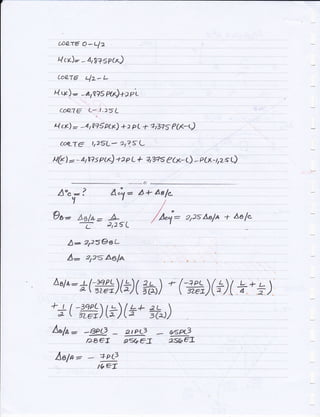 CORTE 0-L/2
M(x)= -4,875P(x)
CORTE L/2-L
M(x)= -4,875P(x)+2PL
CORTE L-1.25L
M(x)= -4,875P(x)+2PL+7,375P(x-L)
CORTE 1,25L-2,25L
M(x)= -4,875P(x)+2PL+7,375P(x-L)-P(x-1,25L)
Δ°cy=? Δcy= Δ+ΔB/C
θB= ΔB/A/L = Δ/2,25L / Δcy= 2,25ΔB/A + ΔB/C
Δ= 2,25θBL
Δ= 2,25ΔB/A
ΔB/A= 1/2(-39PL/32EI)(L/2)(2L/3(2)) + (-7PL/32EI)(L/2)(L/4+L/2)
+1/2(-39PL/32EI)(L/2)(L/2+2L/3(2))
ΔB/A= -13PL3/128EI - 21PL3/256EI - 65PL3/256EI
ΔB/A= -7PL3/16EI